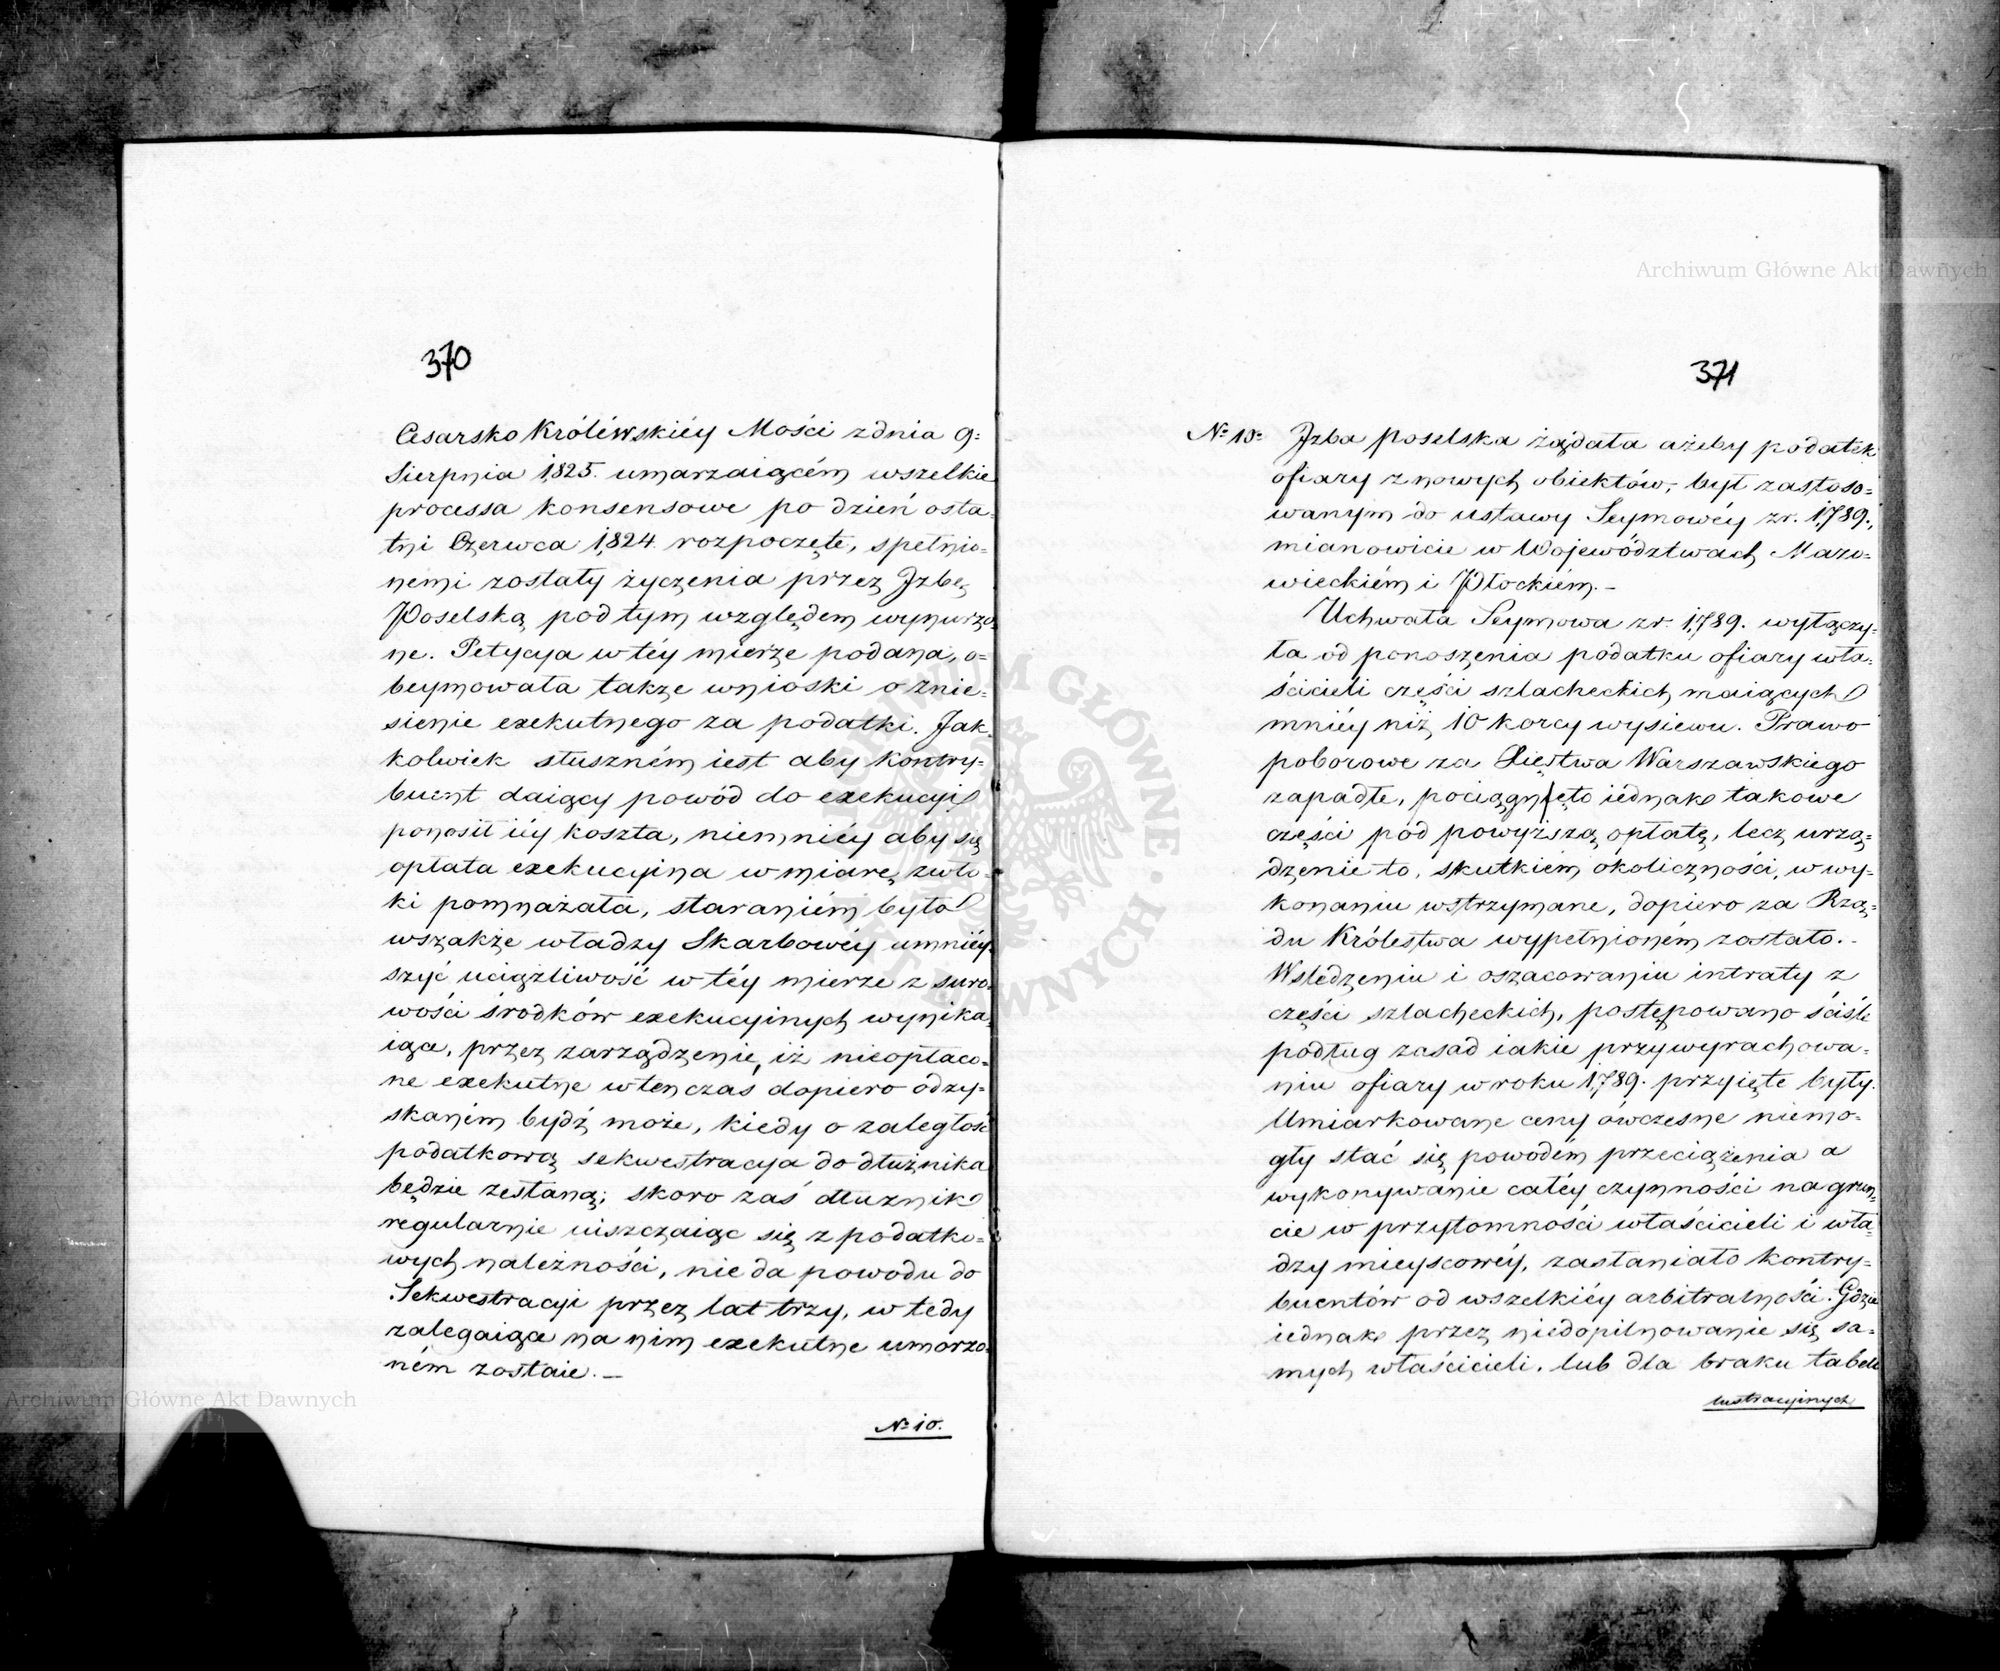 370
Cesarsko Króléwskiéy Mości z dnia 9=
Sierpnia 1825. umarzaiącém wszelkie
processa konsensowe po dzień osta=
tni Czerwca 1,824 rozpoczęte, spełnio=
nemi zostały życzenia przez Jzbę
Poselską pod tym względem wynurzo
ne. Petycya w téy mierze podana, o=
beymowała także wnioski o znie=
sienie exekutnego za podatki. Jak=
kolwiek słuszném iest aby kontry=
buent daiący powód do exekucyi
ponosił iéy koszta, niemniéy aby się
opłata exekucyina w miarę zwło=
ki pomnażała, staraniém było
wszakże władzy Skarbowéy umniéy=
szyć uciążliwość w téy mierze z suro=
wości środków exekucyinych wynika=
iące, przez zarządzenie, iż nieopłaco=
ne exekutne wtenczas dopiero odzy=
skaném bydź może, kiedy o zaległość
podatkową sekwestracya do dłużnika
będzie zesłaną; skoro zaś dłużnik
regularnie uiszczaiąc się z podatko=
wych należności, nie da powodu do
Sekwestracyi przez lat trzy, w tedy
zalegaiące na nim exekutne umorzo=
ném zostaie. —
№ 10.
371
№ 10= Jzba poselska żądała ażeby podatek
ofiary z nowych obiektów, był zastoso=
wanym do ustawy Seymowéy z r. 1,789.,
mianowicie w Województwach Mazo=
wieckiém i Płockiém. —
Uchwała Seymowa z r. 1,789. wyłączy=
ła od ponoszenia podatku ofiary wła=
ścicieli części szlacheckich maiących
mniéy niż 10 korcy wysiewu. Prawo
poborowe za Xięstwa Warszawskiego
zapadłe, pociągnęło iednak takowe
części pod powyższą opłatę, lecz urzą=
dzenie to, skutkiém okoliczności, w wy=
konaniu wstrzymane, dopiero za Rzą=
du Królestwa wypełnioném zostało. -
W śledzeniu i oszacowaniu intraty z
części szlacheckich, postępowano ściśle
podług zasad iakie przy wyrachowa=
niu ofiary w roku 1,789. przyięte były.
Umiarkowane ceny ówczesne niemo=
gły stać się powodém przeciążenia a
wykonywanie całéy czynności na grun=
cie w przytomności właścicieli i wła=
dzy mieyscowéy, zasłaniało kontry=
buentów od wszelkiéy arbitralności. Gdzie
iednak przez niedopilnowanie się sa=
mych właścicieli, lub dla braku tabell
lustracyinych
Archiwum Główne Akt Dawnych
Archiwum Główne Akt Dawnych
ARCHIWUM GŁÓWNE · AKT DAWNYCH ·